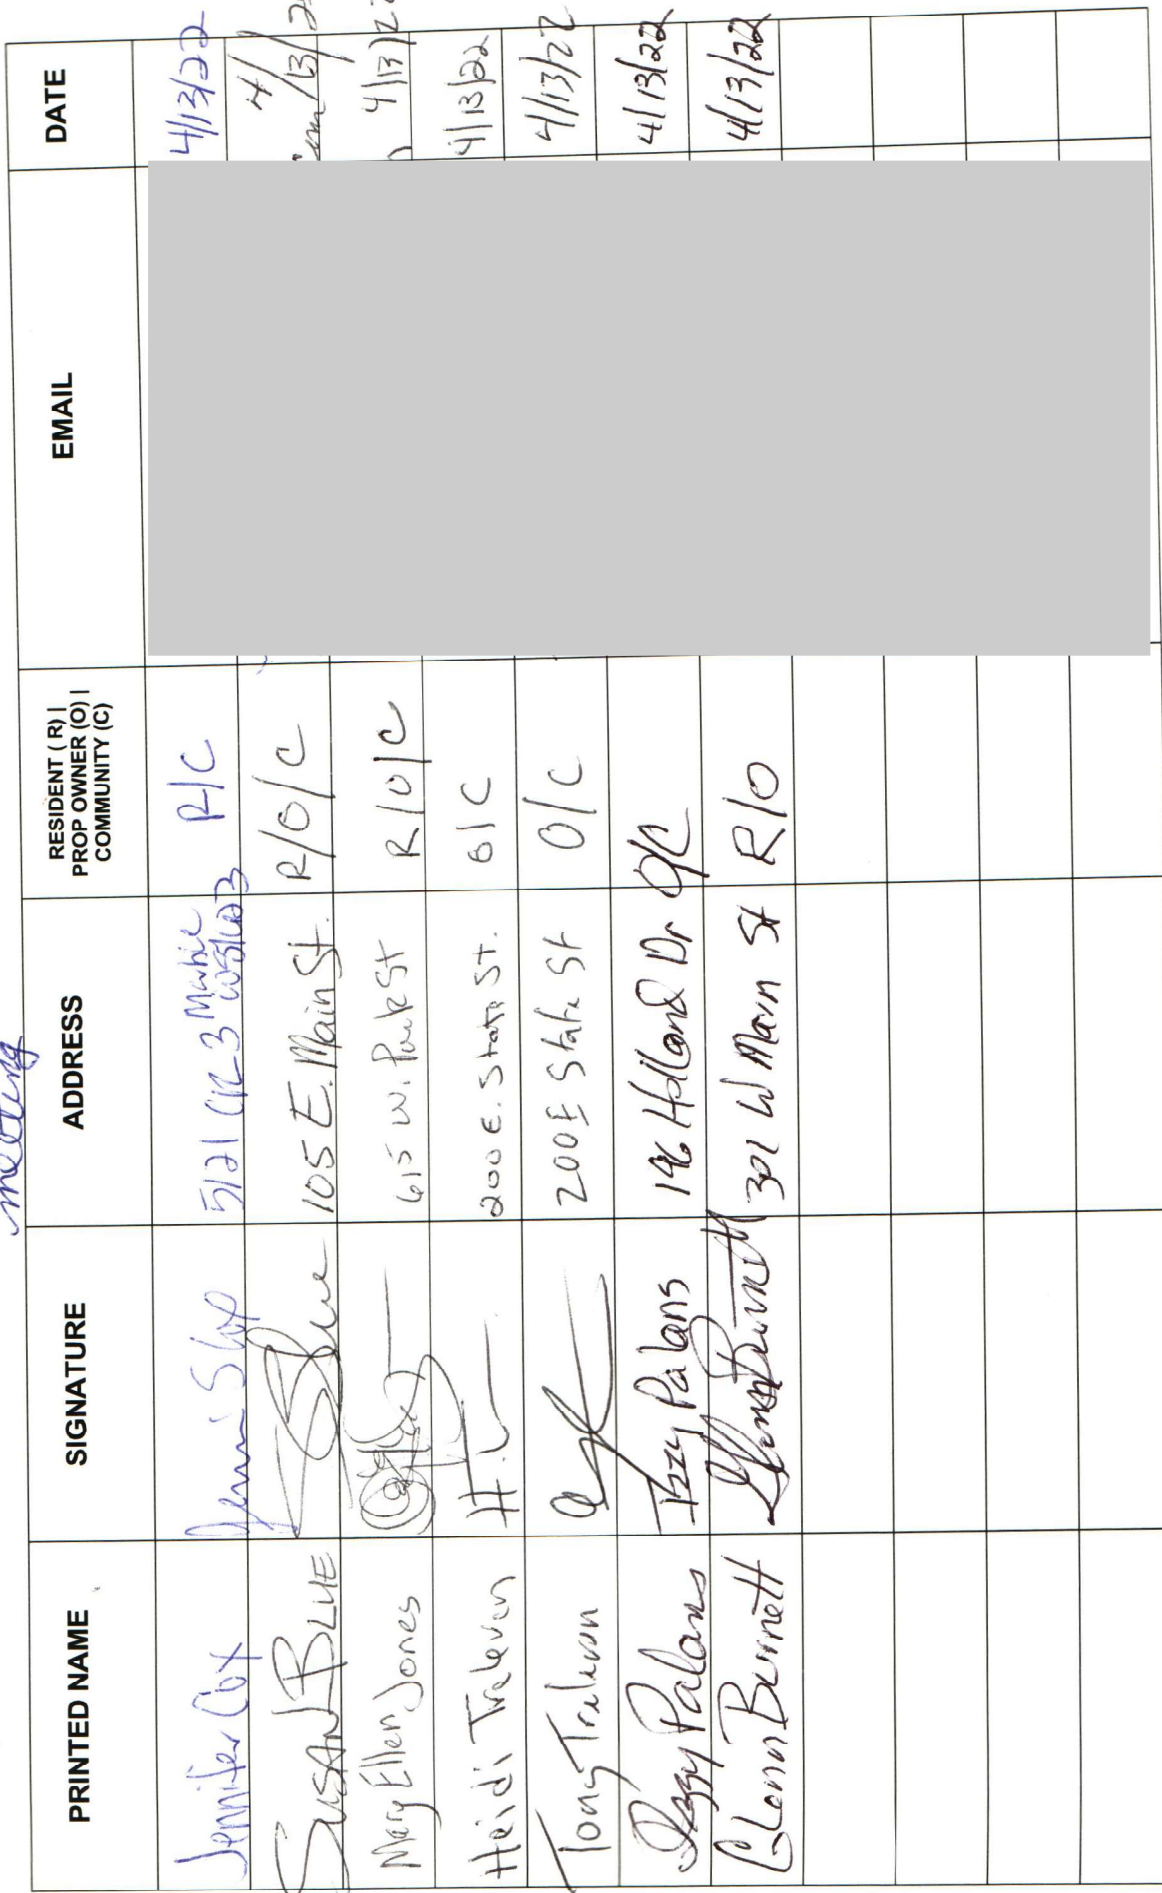 meeting
PRINTED NAME SIGNATURE ADDRESS RESIDENT ( R) | PROP OWNER (O) | COMMUNITY (C) EMAIL DATE
Jennifer Cox 5121 CR 3 Marble R/C 4/13/22
SUSAN BLUE SBlue 105 E. Main St. R/O/C 4/13/2
Mary Ellen Jones 615 W. Park St R/O/C 4/13/2
Heidi Traleven H. 200 E. State St. B/C 4/13/22
Tony Traleven 200 E State St O/C 4/13/22
Izzy Palans Izzy Palans 146 Holland Dr O/C 4/13/22
Glenn Burnett Glenn Burnett 301 W Main St R/O 4/13/22